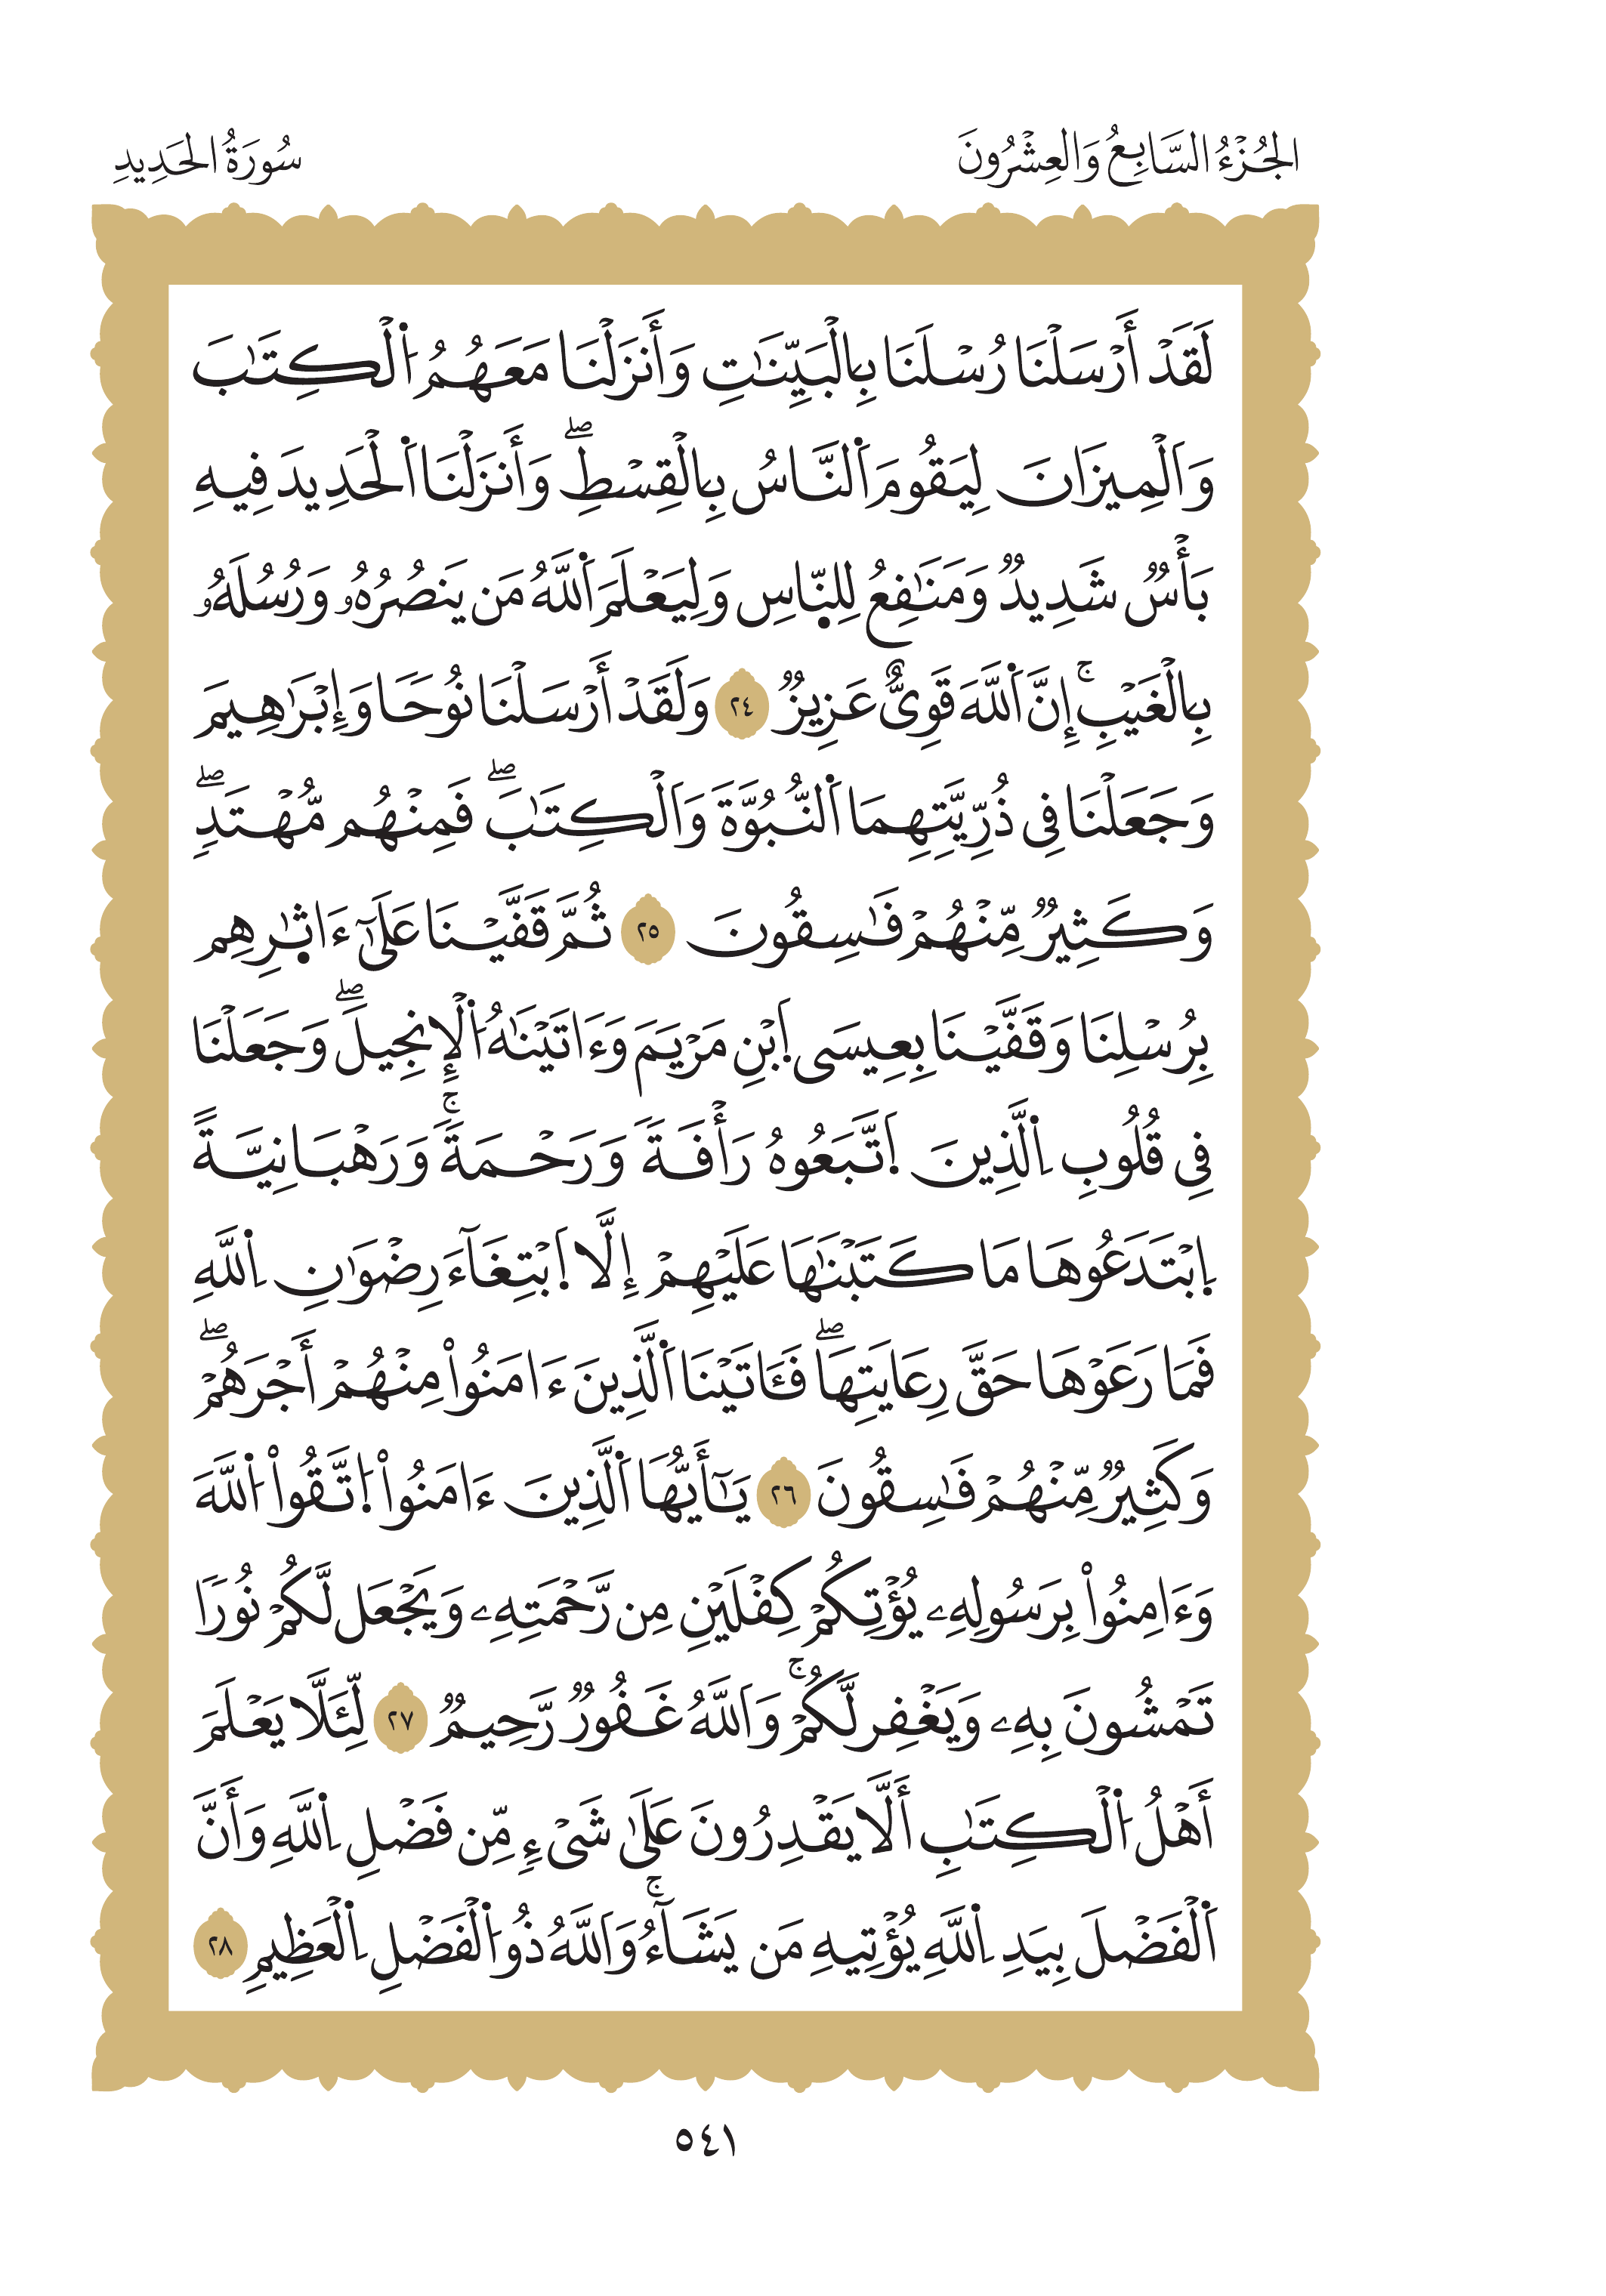 الجُزْءُ السَّابِعُ وَالعِشْرُونَ
سُورَةُ الحَدِيدِ
لَقَدْ أَرْسَلْنَا رُسُلَنَا بِالْبَيِّنَٰتِ وَأَنزَلْنَا مَعَهُمُ اَ۬لْكِتَٰبَ
وَالْمِيزَانَ لِيَقُومَ اَ۬لنَّاسُ بِالْقِسْطِۖ وَأَنزَلْنَا اَ۬لْحَدِيدَ فِيهِ
بَأْسٞ شَدِيدٞ وَمَنَٰفِعُ لِلنّ۪اسِ وَلِيَعْلَمَ اَ۬للَّهُ مَن يَنصُرُهُۥ وَرُسُلَهُۥ
بِالْغَيْبِۚ إِنَّ اَ۬للَّهَ قَوِيٌّ عَزِيزٞ ٢٤ وَلَقَدْ أَرْسَلْنَا نُوحٗا وَإِبْرَٰهِيمَ
وَجَعَلْنَا فِي ذُرِّيَّتِهِمَا اَ۬لنُّبُوَّةَ وَالْكِتَٰبَۖ فَمِنْهُم مُّهْتَدٖۖ
وَكَثِيرٞ مِّنْهُمْ فَٰسِقُونَ ٢٥ ثُمَّ قَفَّيْنَا عَلَىٰٓ ءَاثٰ۪رِهِم
بِرُسْلِنَا وَقَفَّيْنَا بِعِيسَى اَ۪بْنِ مَرْيَمَ وَءَاتَيْنَٰهُ اُ۬لْإِنجِيلَۖ وَجَعَلْنَا
فِي قُلُوبِ اِ۬لَّذِينَ اَ۪تَّبَعُوهُ رَأْفَةٗ وَرَحْمَةٗۚ وَرَهْبَانِيَّةً
اِ۪بْتَدَعُوهَا مَا كَتَبْنَٰهَا عَلَيْهِمْ إِلَّا اَ۪بْتِغَآءَ رِضْوَٰنِ اِ۬للَّهِ
فَمَا رَعَوْهَا حَقَّ رِعَايَتِهَاۖ فَـَٔاتَيْنَا اَ۬لَّذِينَ ءَامَنُواْ مِنْهُمْ أَجْرَهُمْۖ
وَكَثِيرٞ مِّنْهُمْ فَٰسِقُونَ ٢٦ يَٰٓأَيُّهَا اَ۬لَّذِينَ ءَامَنُواْ اُ۪تَّقُواْ اُ۬للَّهَ
وَءَامِنُواْ بِرَسُولِهِۦ يُؤْتِكُمْ كِفْلَيْنِ مِن رَّحْمَتِهِۦ وَيَجْعَل لَّكُمْ نُورٗا
تَمْشُونَ بِهِۦ وَيَغْفِر لَّكُمْۚ وَاللَّهُ غَفُورٞ رَّحِيمٞ ٢٧ لِّئَلَّا يَعْلَمَ
أَهْلُ اُ۬لْكِتَٰبِ أَلَّا يَقْدِرُونَ عَلَىٰ شَيْءٖ مِّن فَضْلِ اِ۬للَّهِ وَأَنَّ
اَ۬لْفَضْلَ بِيَدِ اِ۬للَّهِ يُؤْتِيهِ مَن يَشَآءُۚ وَاللَّهُ ذُو اُ۬لْفَضْلِ اِ۬لْعَظِيمِ ٢٨
٥٤١